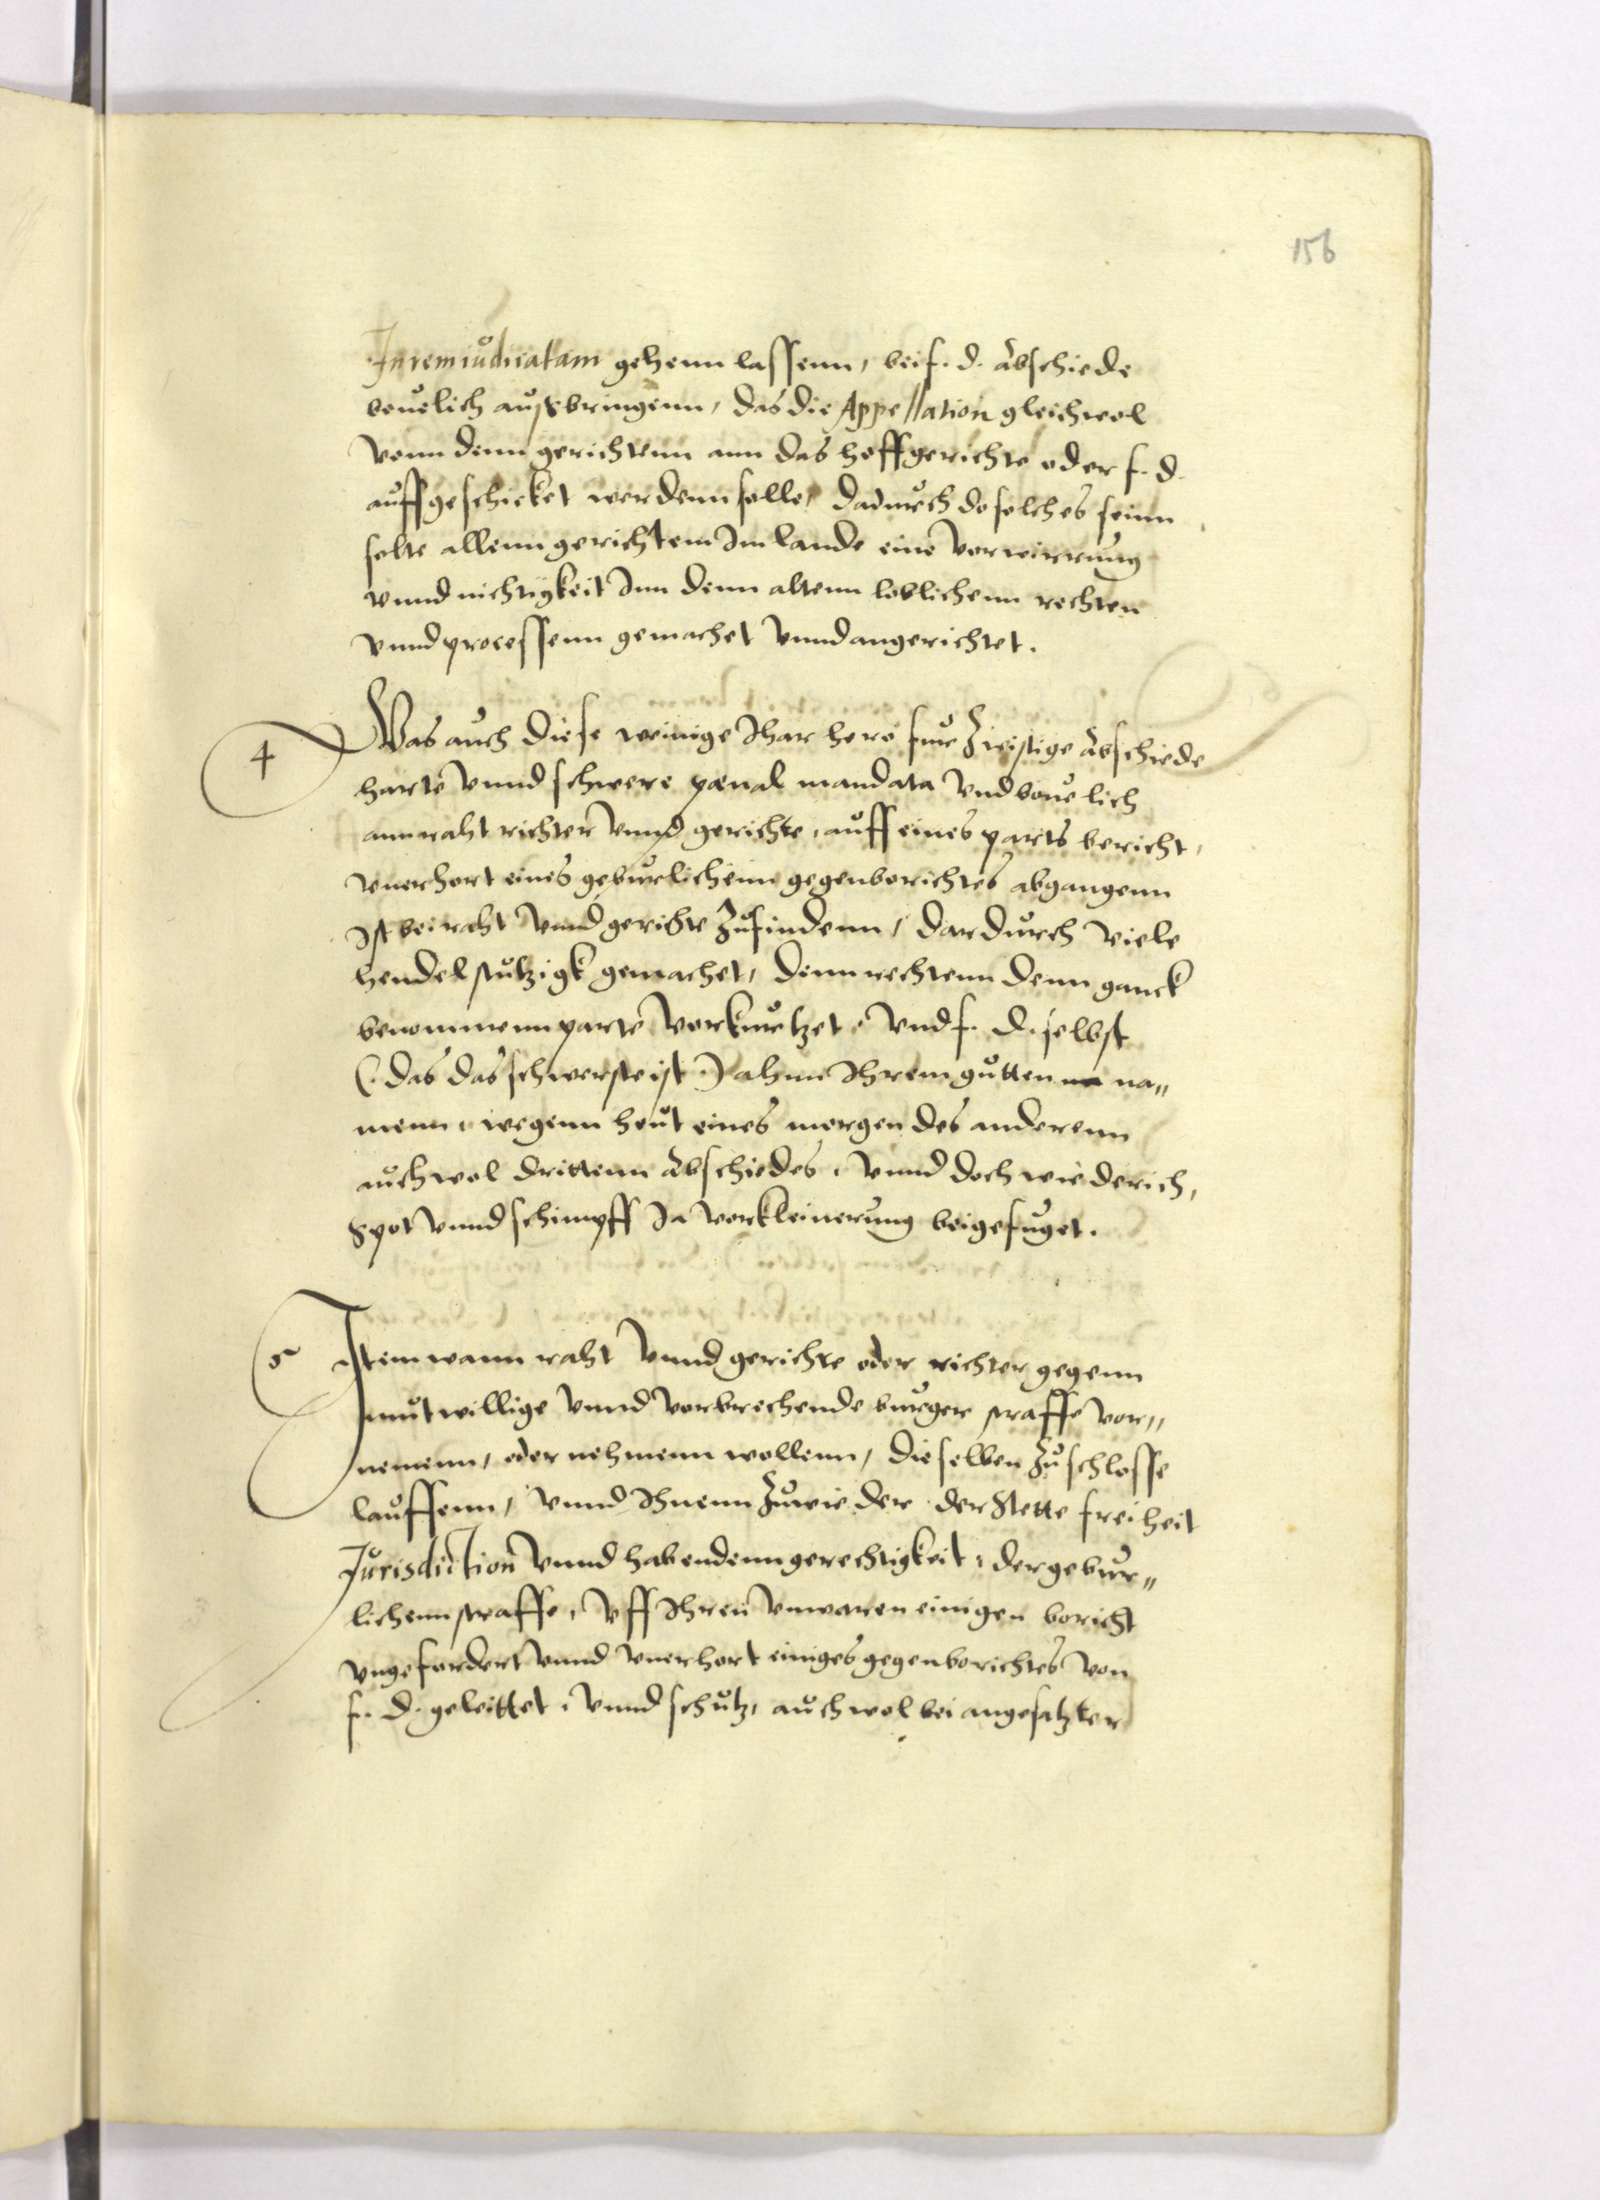 156
In rem iudicatam gehenn lassenn, bei f. d. abschiede
beuelich außbringenn, das die Appellation gleichwol
vonn denn gerichtenn ann das hoffgerichte oder f. d.
auffgeschicket werdenn solle, dadurch do solches seinn
solte allenn gerichtenn Im lande eine vorwirrung
vnnd nichtigkeit Inn denn altenn loblichenn rechten
vnnd processenn gemachet vnnd angerichtet.
4
Was auch diese weinige Ihar hero fur Zwistige abschiede
harte vnnd schwere pœnal mandata vnd beuelich
ann raht richter vnnd gerichte, auff eines parts bericht,
vnerhort eines geburlichenn gegenberichtes abgangenn
Ist bei raht vnnd gerichte Zufindenn, dardurch viele
hendel stutzigk gemachet, denn rechtenn denn ganck
benommenn parte vorkurtzet, vnd f. d. selbst
(. das das schwerste ist .) ahnn Ihrem gutten na„
menn, wegenn heut eines morgen des anderenn
auch wol drittenn abschiedes, vnnd doch wiederich,
Spot vnnd schimpff Ja vorkleinerung beigefuget.
5
Item wann raht vnnd gerichte oder richter gegenn
mutwillige vnnd vorbrechende burger straffe vor„
nemenn, oder nehmenn wollenn, dieselben Zu schlosse
lauffenn, vnnd Ihnenn Zuwieder der Stette freiheit
Jurisdiction vnnd habendenn gerechtigkeit, der gebur„
lichenn straffe, vff Ihren vnwaren einigen bericht
vngefordert vnnd vnerhort einiges gegenberichtes von
f. d. geleittet, vnnd schutz, auch wol bei angesatzter